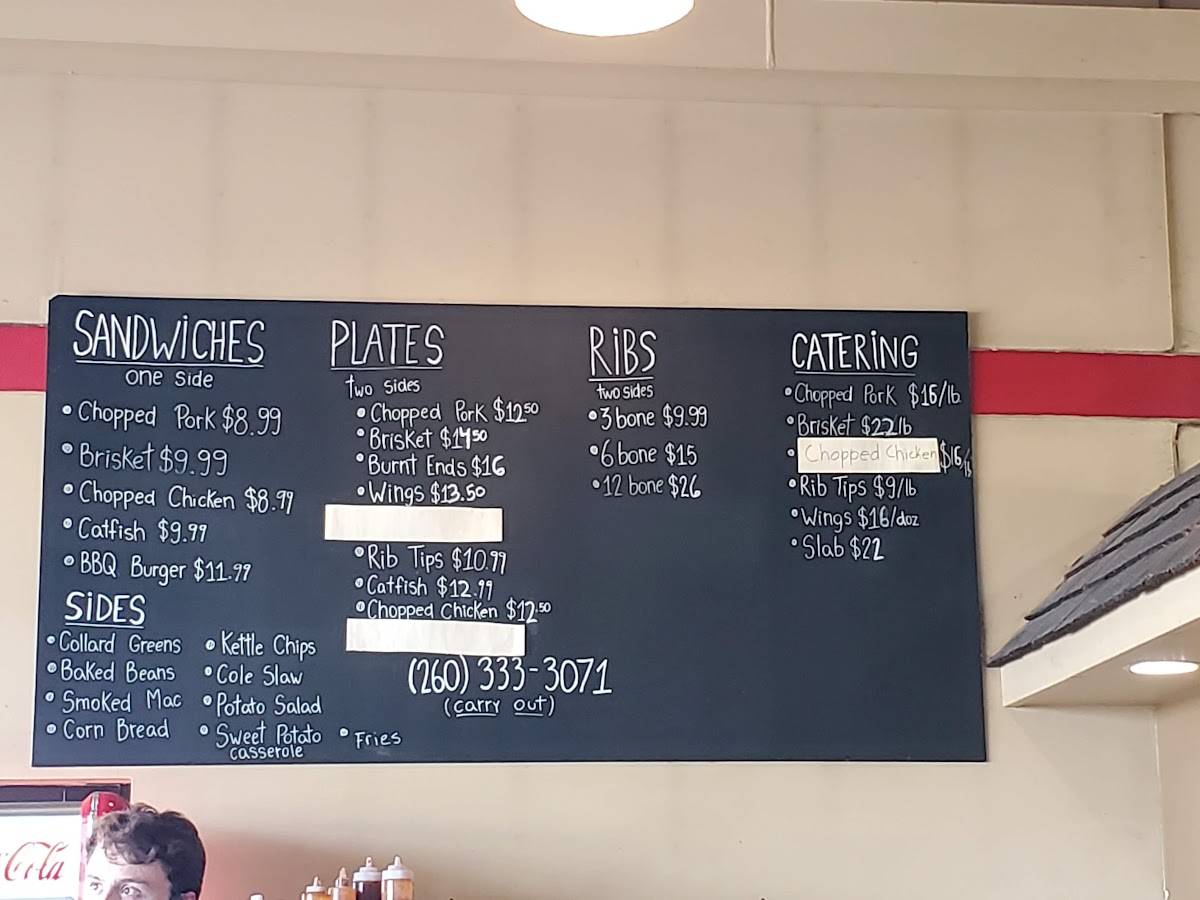 SANDWiCHES
one side
• Chopped Pork $8.99
• Brisket $9.99
• Chopped Chicken $8.99
• Catfish $9.99
• BBQ Burger $11.99
SiDES
• Collard Greens
• Baked Beans
• Smoked Mac
• Corn Bread
• Kettle Chips
• Cole Slaw
• Potato Salad
• Sweet Potato
casserole
• Fries
PLATES
Two sides
• Chopped Pork $12.50
• Brisket $14.50
• Burnt Ends $16
• Wings $13.50
• Rib Tips $10.99
• Catfish $12.99
• Chopped Chicken $12.50
(260) 333-3071
(carry out)
RiBS
two sides
• 3 bone $9.99
• 6 bone $15
• 12 bone $26
CATERiNG
• Chopped Pork $16/lb
• Brisket $22lb
• Chopped Chicken $16/lb
• Rib Tips $9/lb
• Wings $16/doz
• Slab $22
Cola